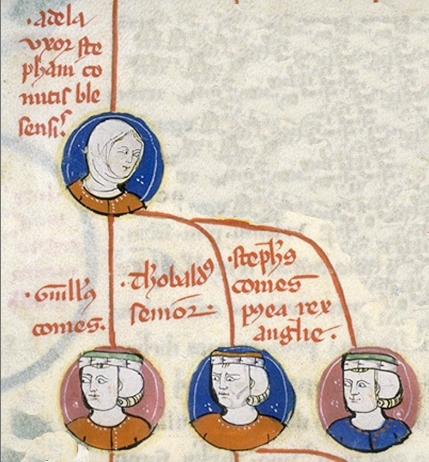 ·adela
vxor ste
phani co
mitis ble
sensis
·Guill's
comes.
·thobald'
senior·
·steph's
comes
p'ea rex
anglie·